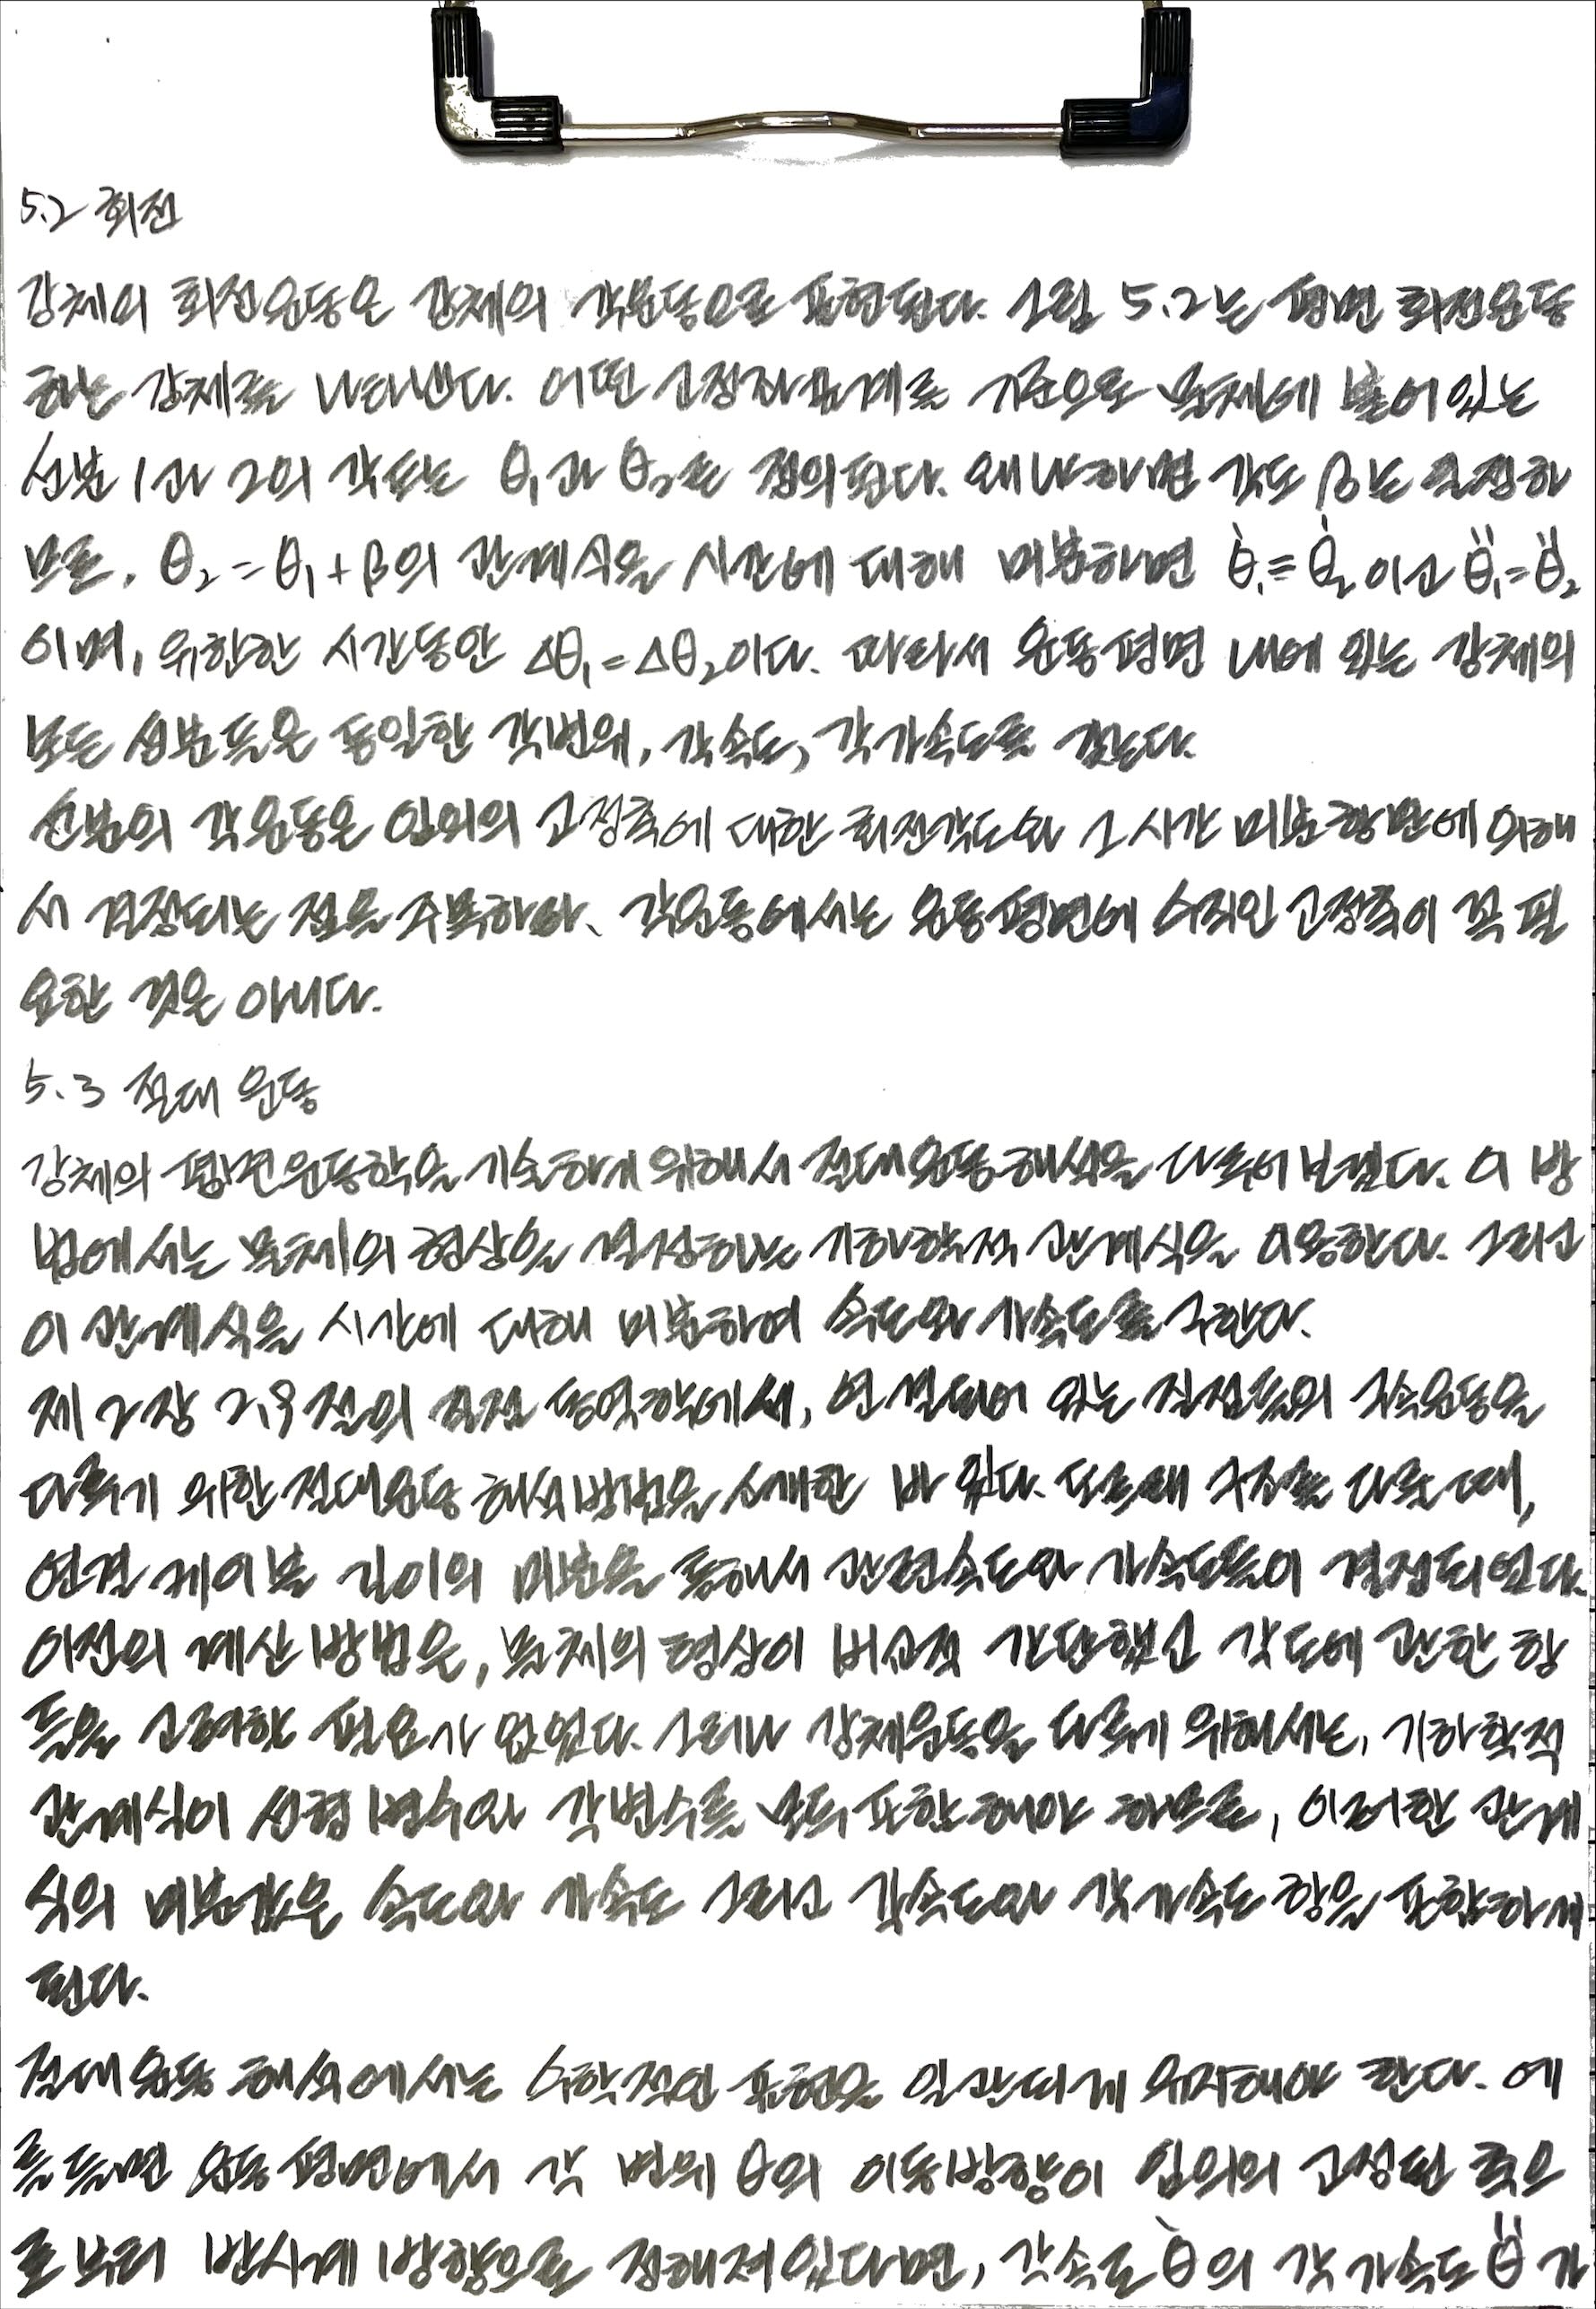 5.2 회전
강체의 회전운동은 강체의 각운동으로 표현된다. 그림 5.2는 평면 회전운동
하는 강체를 나타낸다. 어떤 고정좌표계를 기준으로 물체에 붙어있는
선분 1과 2의 각도는 θ₁과 θ₂로 정의된다. 왜냐하면 각도 β는 일정하
므로, θ₂ = θ₁ + β의 관계식을 시간에 대해 미분하면 θ̇₁ = θ̇₂ 이고 θ̈₁ = θ̈₂
이며, 유한한 시간동안 Δθ₁ = Δθ₂이다. 따라서 운동평면 내에 있는 강체의
모든 선분들은 동일한 각변위, 각속도, 각가속도를 갖는다.
선분의 각운동은 임의의 고정축에 대한 회전각도와 그 시간 미분항만에 의해
서 결정되는 점을 주목하라. 각운동에서는 운동평면에 수직인 고정축이 꼭 필
요한 것은 아니다.
5.3 절대 운동
강체의 평면운동학을 기술하기 위해서 절대운동해석을 다루어 보겠다. 이 방
법에서는 물체의 형상을 결정하는 기하학적 관계식을 이용한다. 그리고
이 관계식을 시간에 대해 미분하여 속도와 가속도를 구한다.
제 2장 2.9절의 질점 동역학에서, 연결되어 있는 질점들의 구속운동을
다루기 위한 절대운동 해석방법을 소개한 바 있다. 도르래 구조를 다룰 때,
연결 케이블 길이의 미분을 통해서 관련속도와 가속도들이 결정되었다.
이전의 계산 방법은, 물체의 형상이 비교적 간단했고 각도에 관한 항
들을 고려할 필요가 없었다. 그러나 강체운동을 다루기 위해서는, 기하학적
관계식이 선형 변수와 각변수를 모두 포함해야 하므로, 이러한 관계
식의 미분값은 속도와 가속도 그리고 각속도와 각가속도 항을 포함하게
된다.
절대운동 해석에서는 수학적인 표현을 일관되게 유지해야 한다. 예
를들면 운동평면에서 각 변위 θ의 이동방향이 임의의 고정된 축으
로부터 반시계 방향으로 정해져있다면, 각속도 θ̇의 각가속도 θ̈ 가